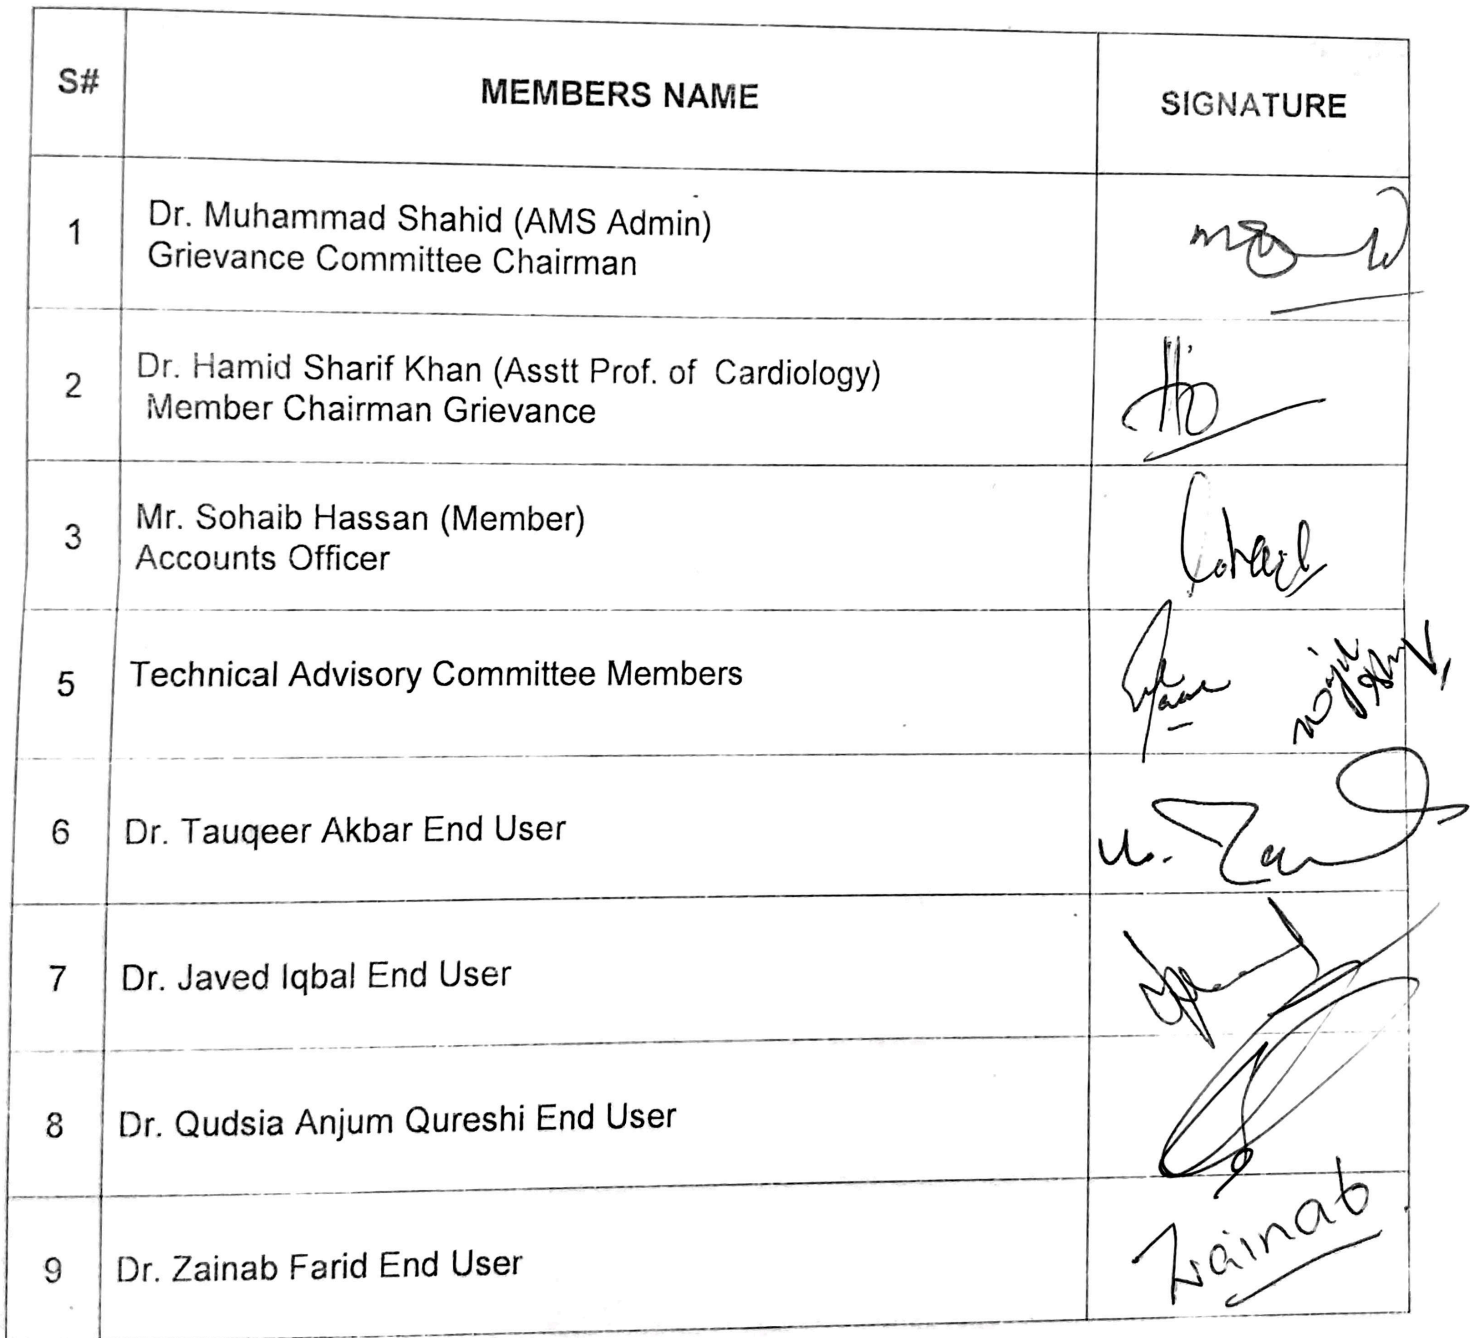 S# MEMBERS NAME SIGNATURE
1 Dr. Muhammad Shahid (AMS Admin)
Grievance Committee Chairman
2 Dr. Hamid Sharif Khan (Asstt Prof. of Cardiology)
Member Chairman Grievance
3 Mr. Sohaib Hassan (Member)
Accounts Officer
5 Technical Advisory Committee Members
6 Dr. Tauqeer Akbar End User
7 Dr. Javed Iqbal End User
8 Dr. Qudsia Anjum Qureshi End User
9 Dr. Zainab Farid End User Zainab